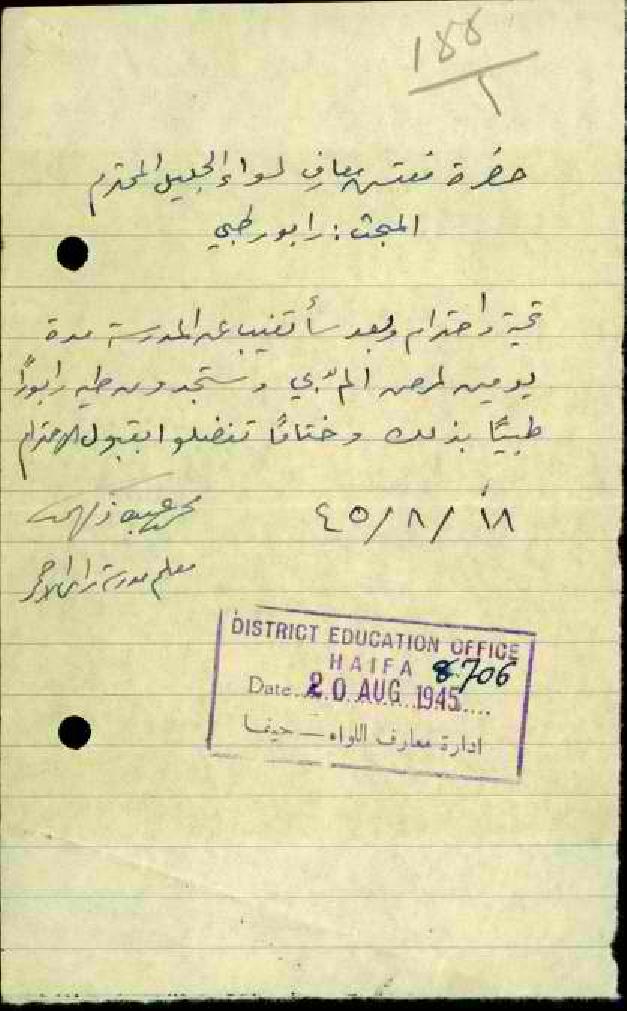 188
1
حضرة مفتش معارف لواء الجليل المحترم
المبحث : رابور طبي
تحية واحترام وبعد سأتغيب عن المدرسة مدة
يومين لمرض ألمّ بي وستجدون طيه رابورًا
طبيًا بذلك وختامًا تفضلوا بقبول الاحترام
١٨/٨/٤٥
معلم مدرسة راس الاحمر
DISTRICT EDUCATION OFFICE
HAIFA 8706
Date 20 AUG 1945
ادارة معارف اللواء — حيفا